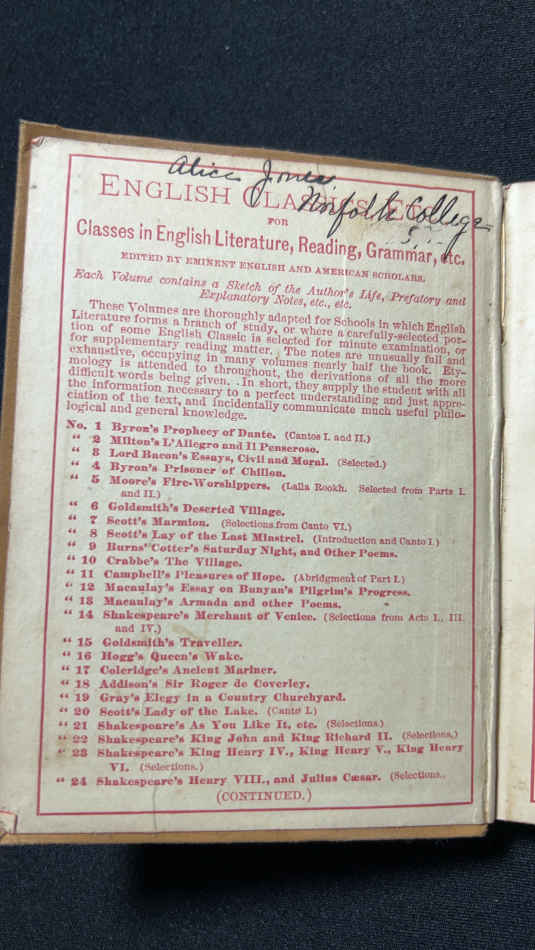 Alice Jones
Norfolk College
ENGLISH CLASSICS,
FOR
Classes in English Literature, Reading, Grammar, etc.
EDITED BY EMINENT ENGLISH AND AMERICAN SCHOLARS.
Each Volume contains a Sketch of the Author's Life, Prefatory and
Explanatory Notes, etc., etc.
These Volumes are thoroughly adapted for Schools in which English
Literature forms a branch of study, or where a carefully-selected por-
tion of some English Classic is selected for minute examination, or
for supplementary reading matter. The notes are unusually full and
exhaustive, occupying in many volumes nearly half the book. Ety-
mology is attended to throughout, the derivations of all the more
difficult words being given. In short, they supply the student with all
the information necessary to a perfect understanding and just appre-
ciation of the text, and incidentally communicate much useful philo-
logical and general knowledge.
No. 1 Byron's Prophecy of Dante. (Cantos I. and II.)
" 2 Milton's L'Allegro and Il Penseroso.
" 3 Lord Bacon's Essays, Civil and Moral. (Selected.)
" 4 Byron's Prisoner of Chillon.
" 5 Moore's Fire-Worshippers. (Lalla Rookh. Selected from Parts I.
and II.)
" 6 Goldsmith's Deserted Village.
" 7 Scott's Marmion. (Selections from Canto VI.)
" 8 Scott's Lay of the Last Minstrel. (Introduction and Canto I.)
" 9 Burns' Cotter's Saturday Night, and Other Poems.
" 10 Crabbe's The Village.
" 11 Campbell's Pleasures of Hope. (Abridgment of Part I.)
" 12 Macaulay's Essay on Bunyan's Pilgrim's Progress.
" 13 Macaulay's Armada and other Poems.
" 14 Shakespeare's Merchant of Venice. (Selections from Acts I., III.
and IV.)
" 15 Goldsmith's Traveller.
" 16 Hogg's Queen's Wake.
" 17 Coleridge's Ancient Mariner.
" 18 Addison's Sir Roger de Coverley.
" 19 Gray's Elegy in a Country Churchyard.
" 20 Scott's Lady of the Lake. (Canto I.)
" 21 Shakespeare's As You Like It, etc. (Selections.)
" 22 Shakespeare's King John and King Richard II. (Selections.)
" 23 Shakespeare's King Henry IV., King Henry V., King Henry
VI. (Selections.)
" 24 Shakespeare's Henry VIII., and Julius Cæsar. (Selections.
(CONTINUED.)